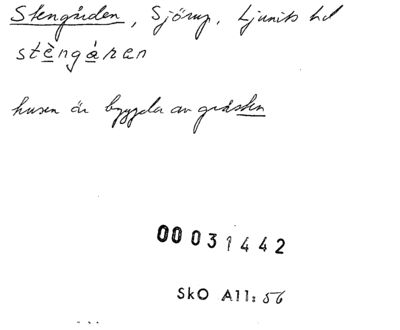 Stengården, Sjörup, Ljunits hd
stèngáran
husen är byggda av gråsten
00031442
SkO All: 56